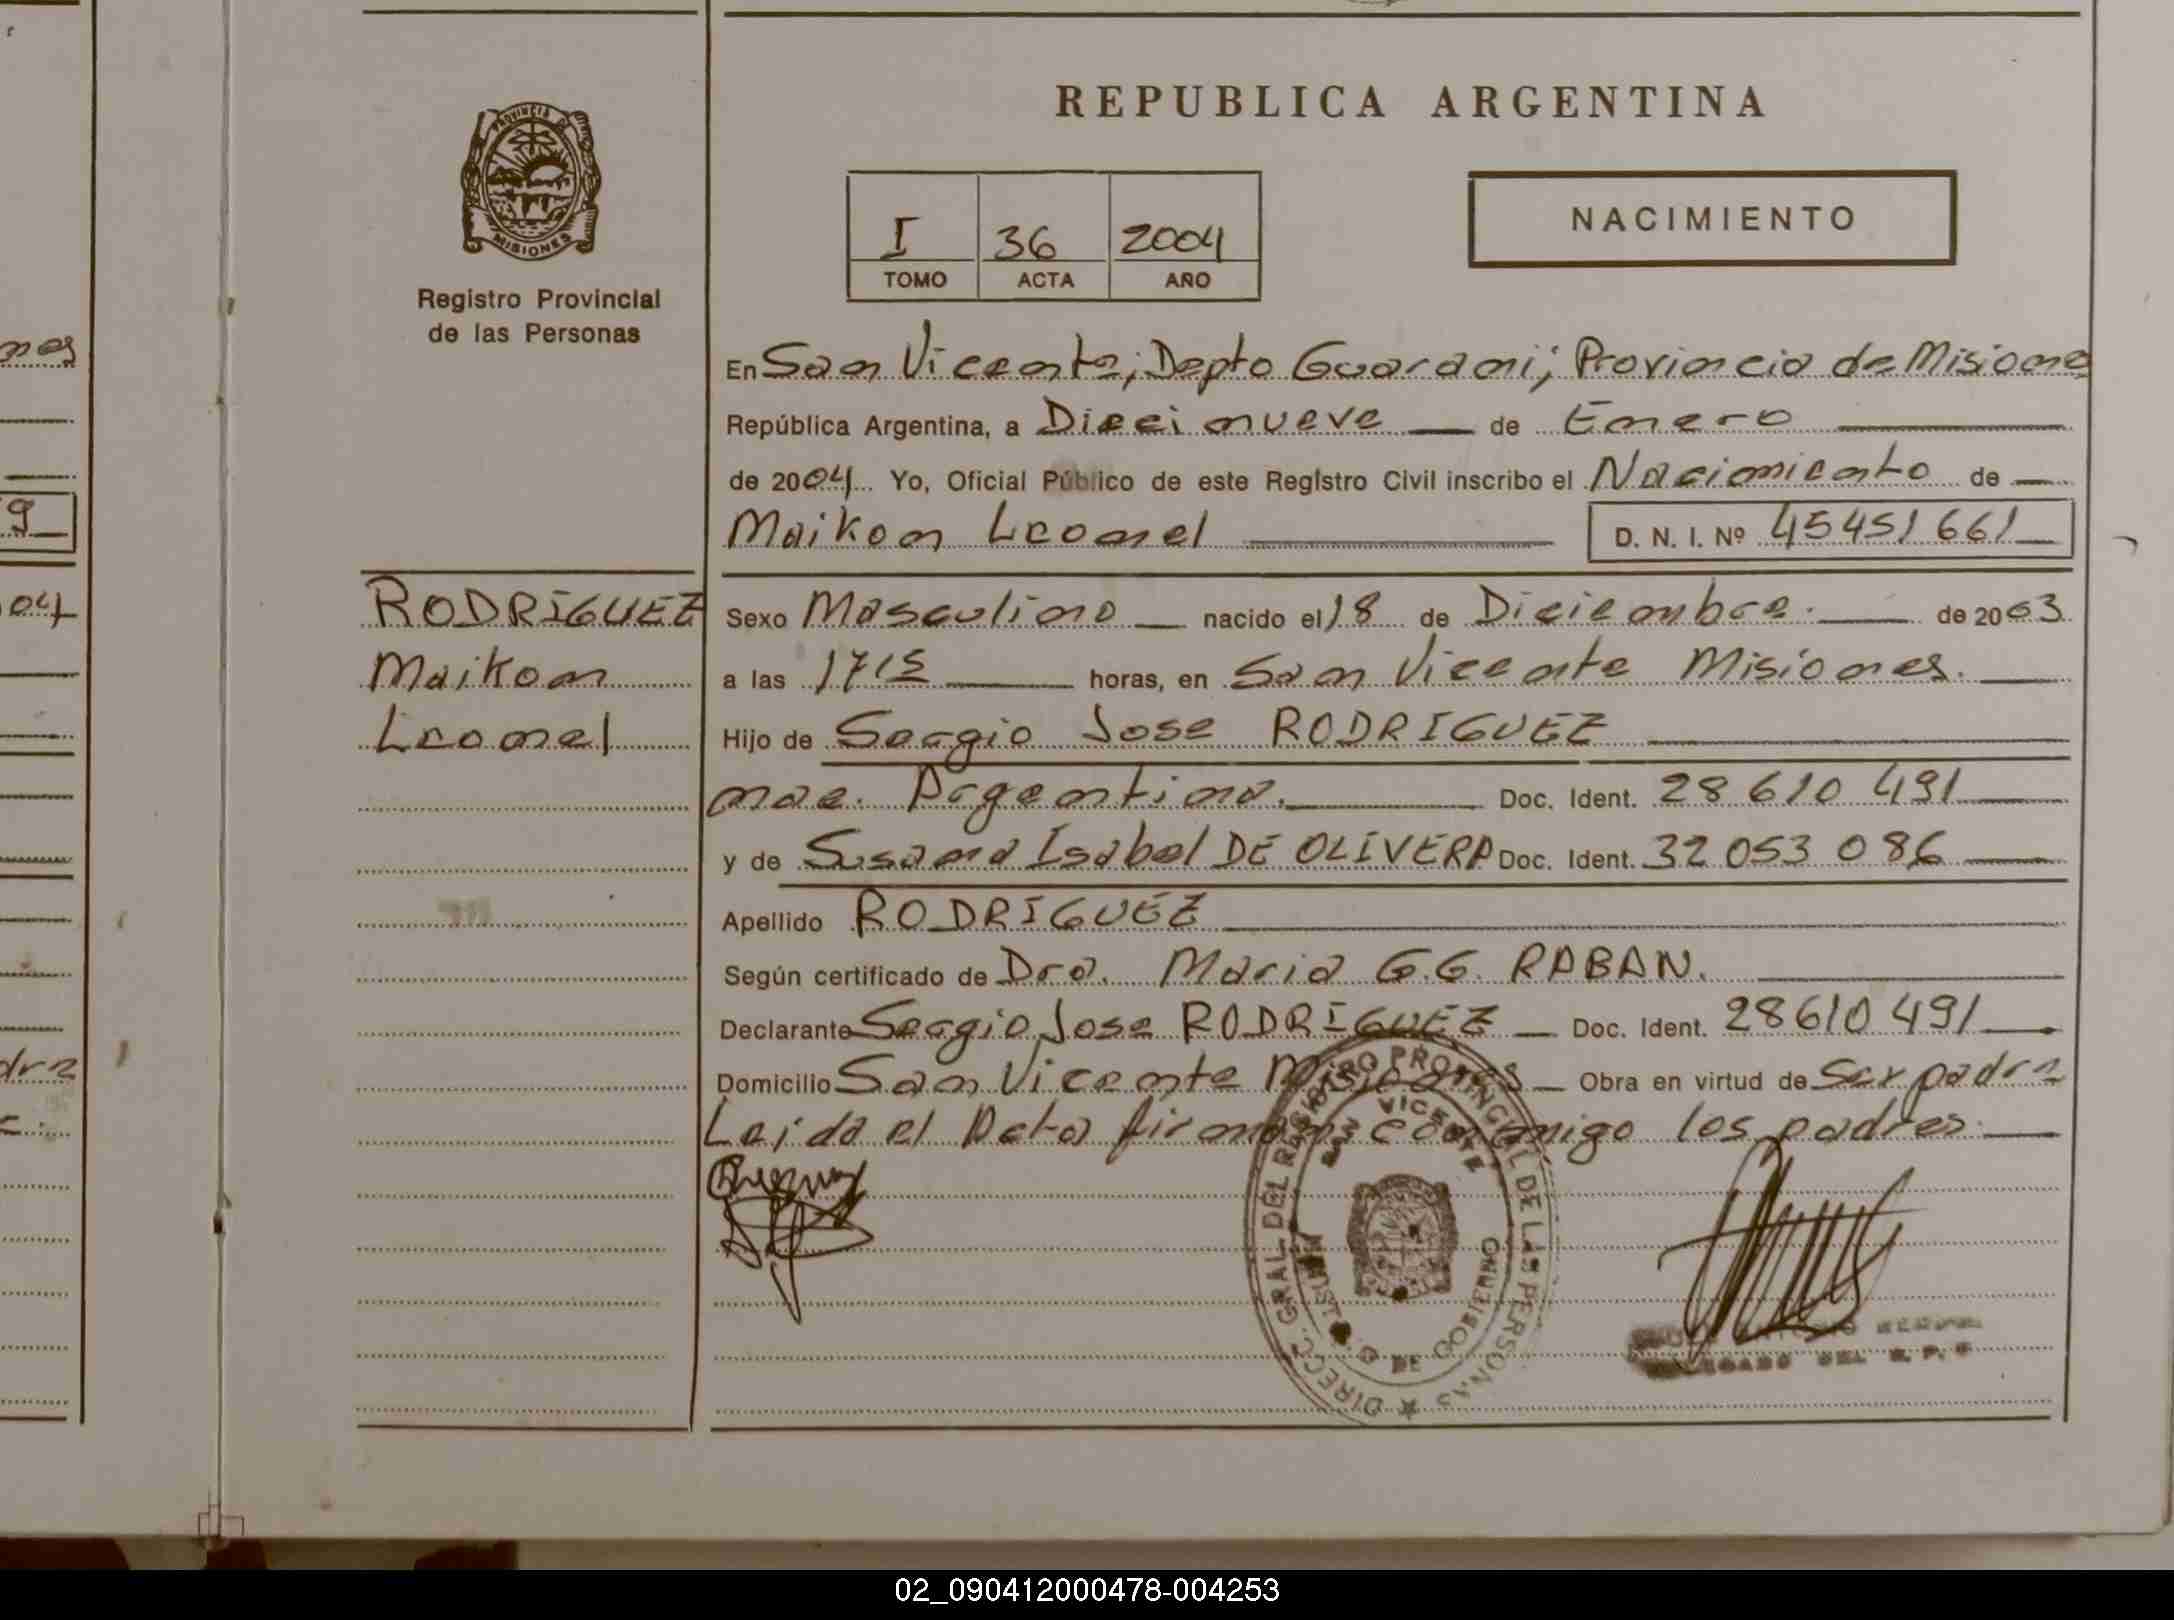 REPUBLICA ARGENTINA
PROVINCIA DE
MISIONES
Registro Provincial
de las Personas
I 36 2004
TOMO ACTA AÑO
NACIMIENTO
En San Vicente, Depto Guarani; Provincia de Misiones
República Argentina, a Dieci nueve de Enero
de 2004 Yo, Oficial Público de este Registro Civil inscribo el Nacimiento de
Maikon Leonel D. N. I. Nº 45451661
RODRIGUEZ
Maikon
Leonel
Sexo Masculino nacido el 18 de Diciembre. de 2003
a las 1715 horas, en San Vicente Misiones.
Hijo de Sergio Jose RODRIGUEZ
nac. Argentina. Doc. Ident. 28 610 491
y de Susana Isabel DE OLIVERA Doc. Ident. 32 053 086
Apellido RODRIGUEZ
Según certificado de Dra. Maria G.G. RABAN.
Declarante Sergio Jose RODRIGUEZ Doc. Ident. 28610 491
Domicilio San Vicente Misiones Obra en virtud de Ser padre
Leida el Acta firman conmigo los padres.
DIRECC. GRAL. DEL REGISTRO PROVINCIAL DE LAS PERSONAS
SAN VICENTE
DE GOBIERNO
DEL R. P. P
nes
9
04
dre
02_090412000478-004253